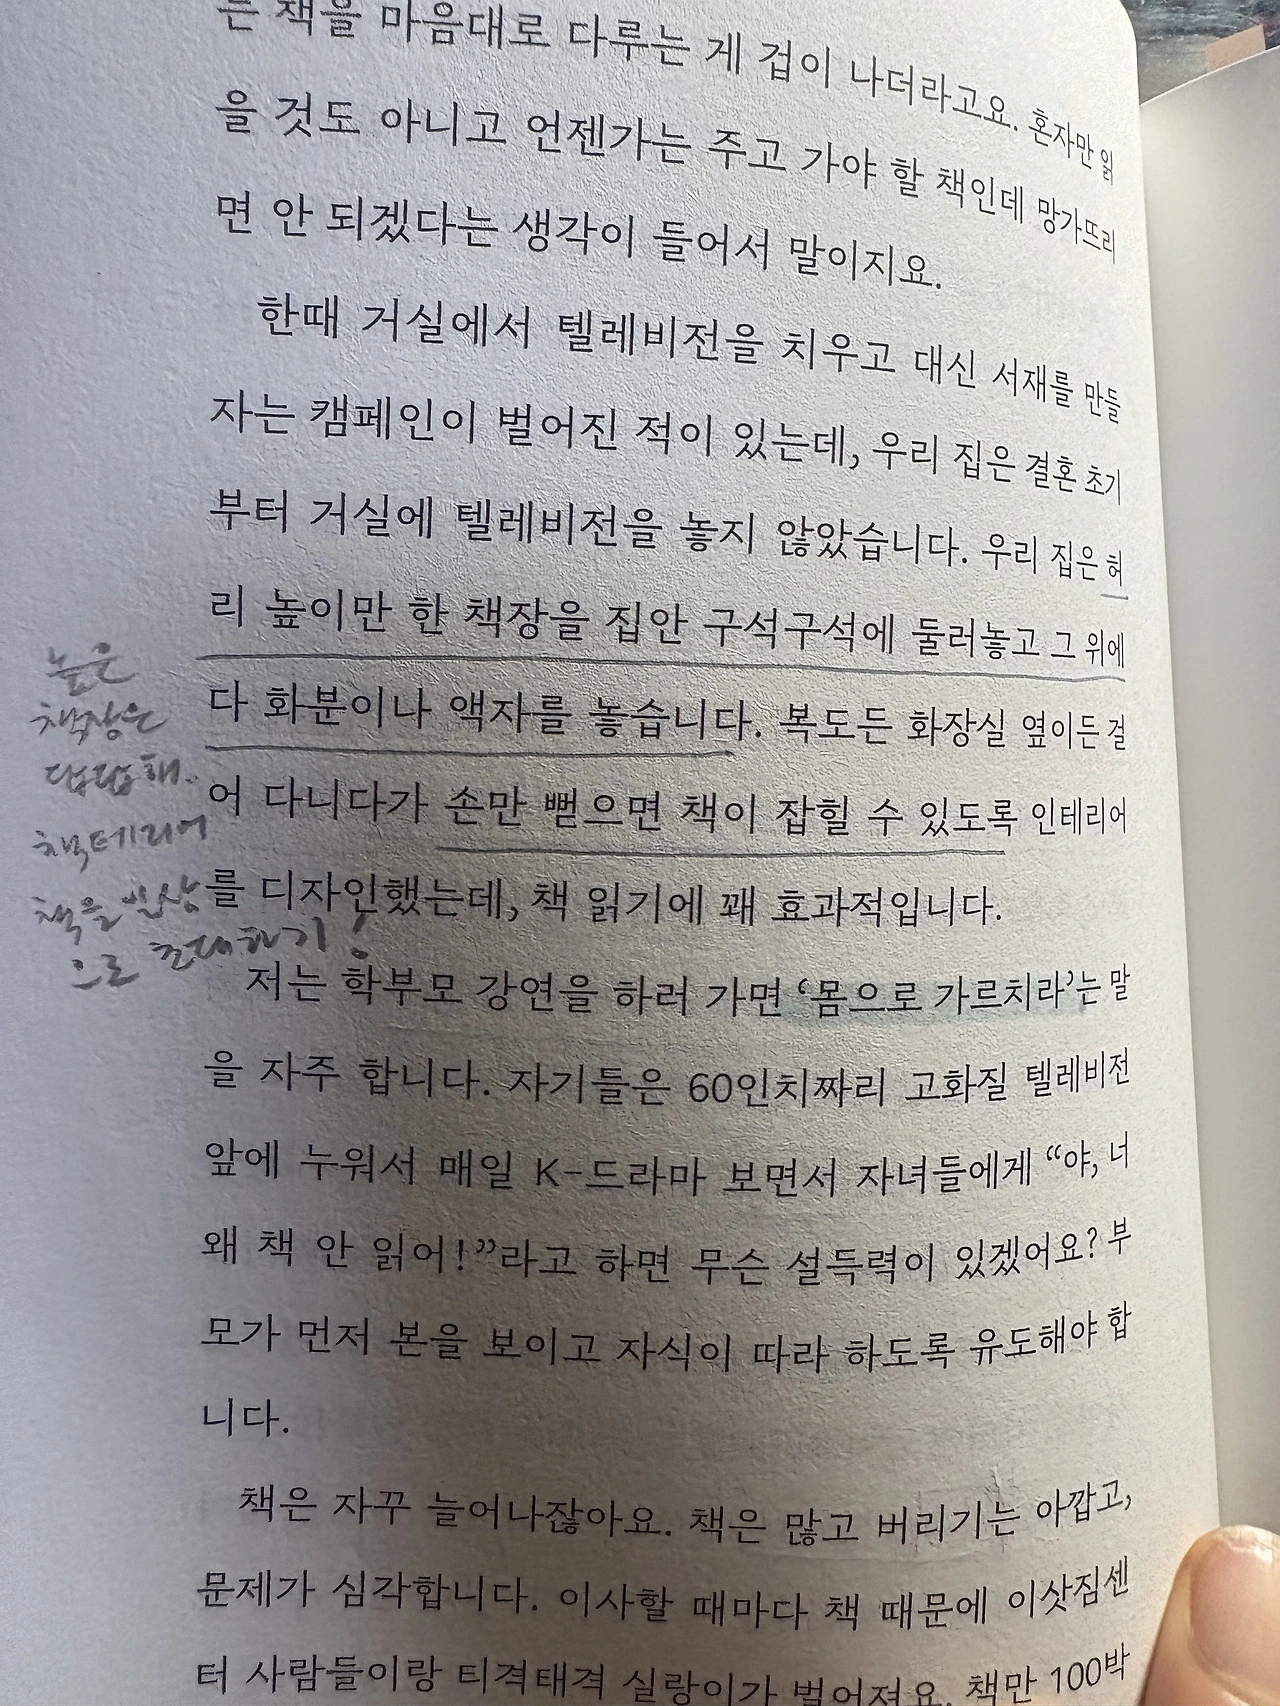 는 책을 마음대로 다루는 게 겁이 나더라고요. 혼자만 읽
을 것도 아니고 언젠가는 주고 가야 할 책인데 망가뜨리
면 안 되겠다는 생각이 들어서 말이지요.
한때 거실에서 텔레비전을 치우고 대신 서재를 만들
자는 캠페인이 벌어진 적이 있는데, 우리 집은 결혼 초기
부터 거실에 텔레비전을 놓지 않았습니다. 우리 집은 허
리 높이만 한 책장을 집안 구석구석에 둘러놓고 그 위에
다 화분이나 액자를 놓습니다. 복도든 화장실 옆이든 걸
어 다니다가 손만 뻗으면 책이 잡힐 수 있도록 인테리어
를 디자인했는데, 책 읽기에 꽤 효과적입니다.
높은
책장은
답답해..
책테리어
책을 일상
으로 초대하기!
저는 학부모 강연을 하러 가면 ‘몸으로 가르치라’는 말
을 자주 합니다. 자기들은 60인치짜리 고화질 텔레비전
앞에 누워서 매일 K-드라마 보면서 자녀들에게 “야, 너
왜 책 안 읽어!”라고 하면 무슨 설득력이 있겠어요? 부
모가 먼저 본을 보이고 자식이 따라 하도록 유도해야 합
니다.
책은 자꾸 늘어나잖아요. 책은 많고 버리기는 아깝고,
문제가 심각합니다. 이사할 때마다 책 때문에 이삿짐센
터 사람들이랑 티격태격 실랑이가 벌어져요. 책만 100박